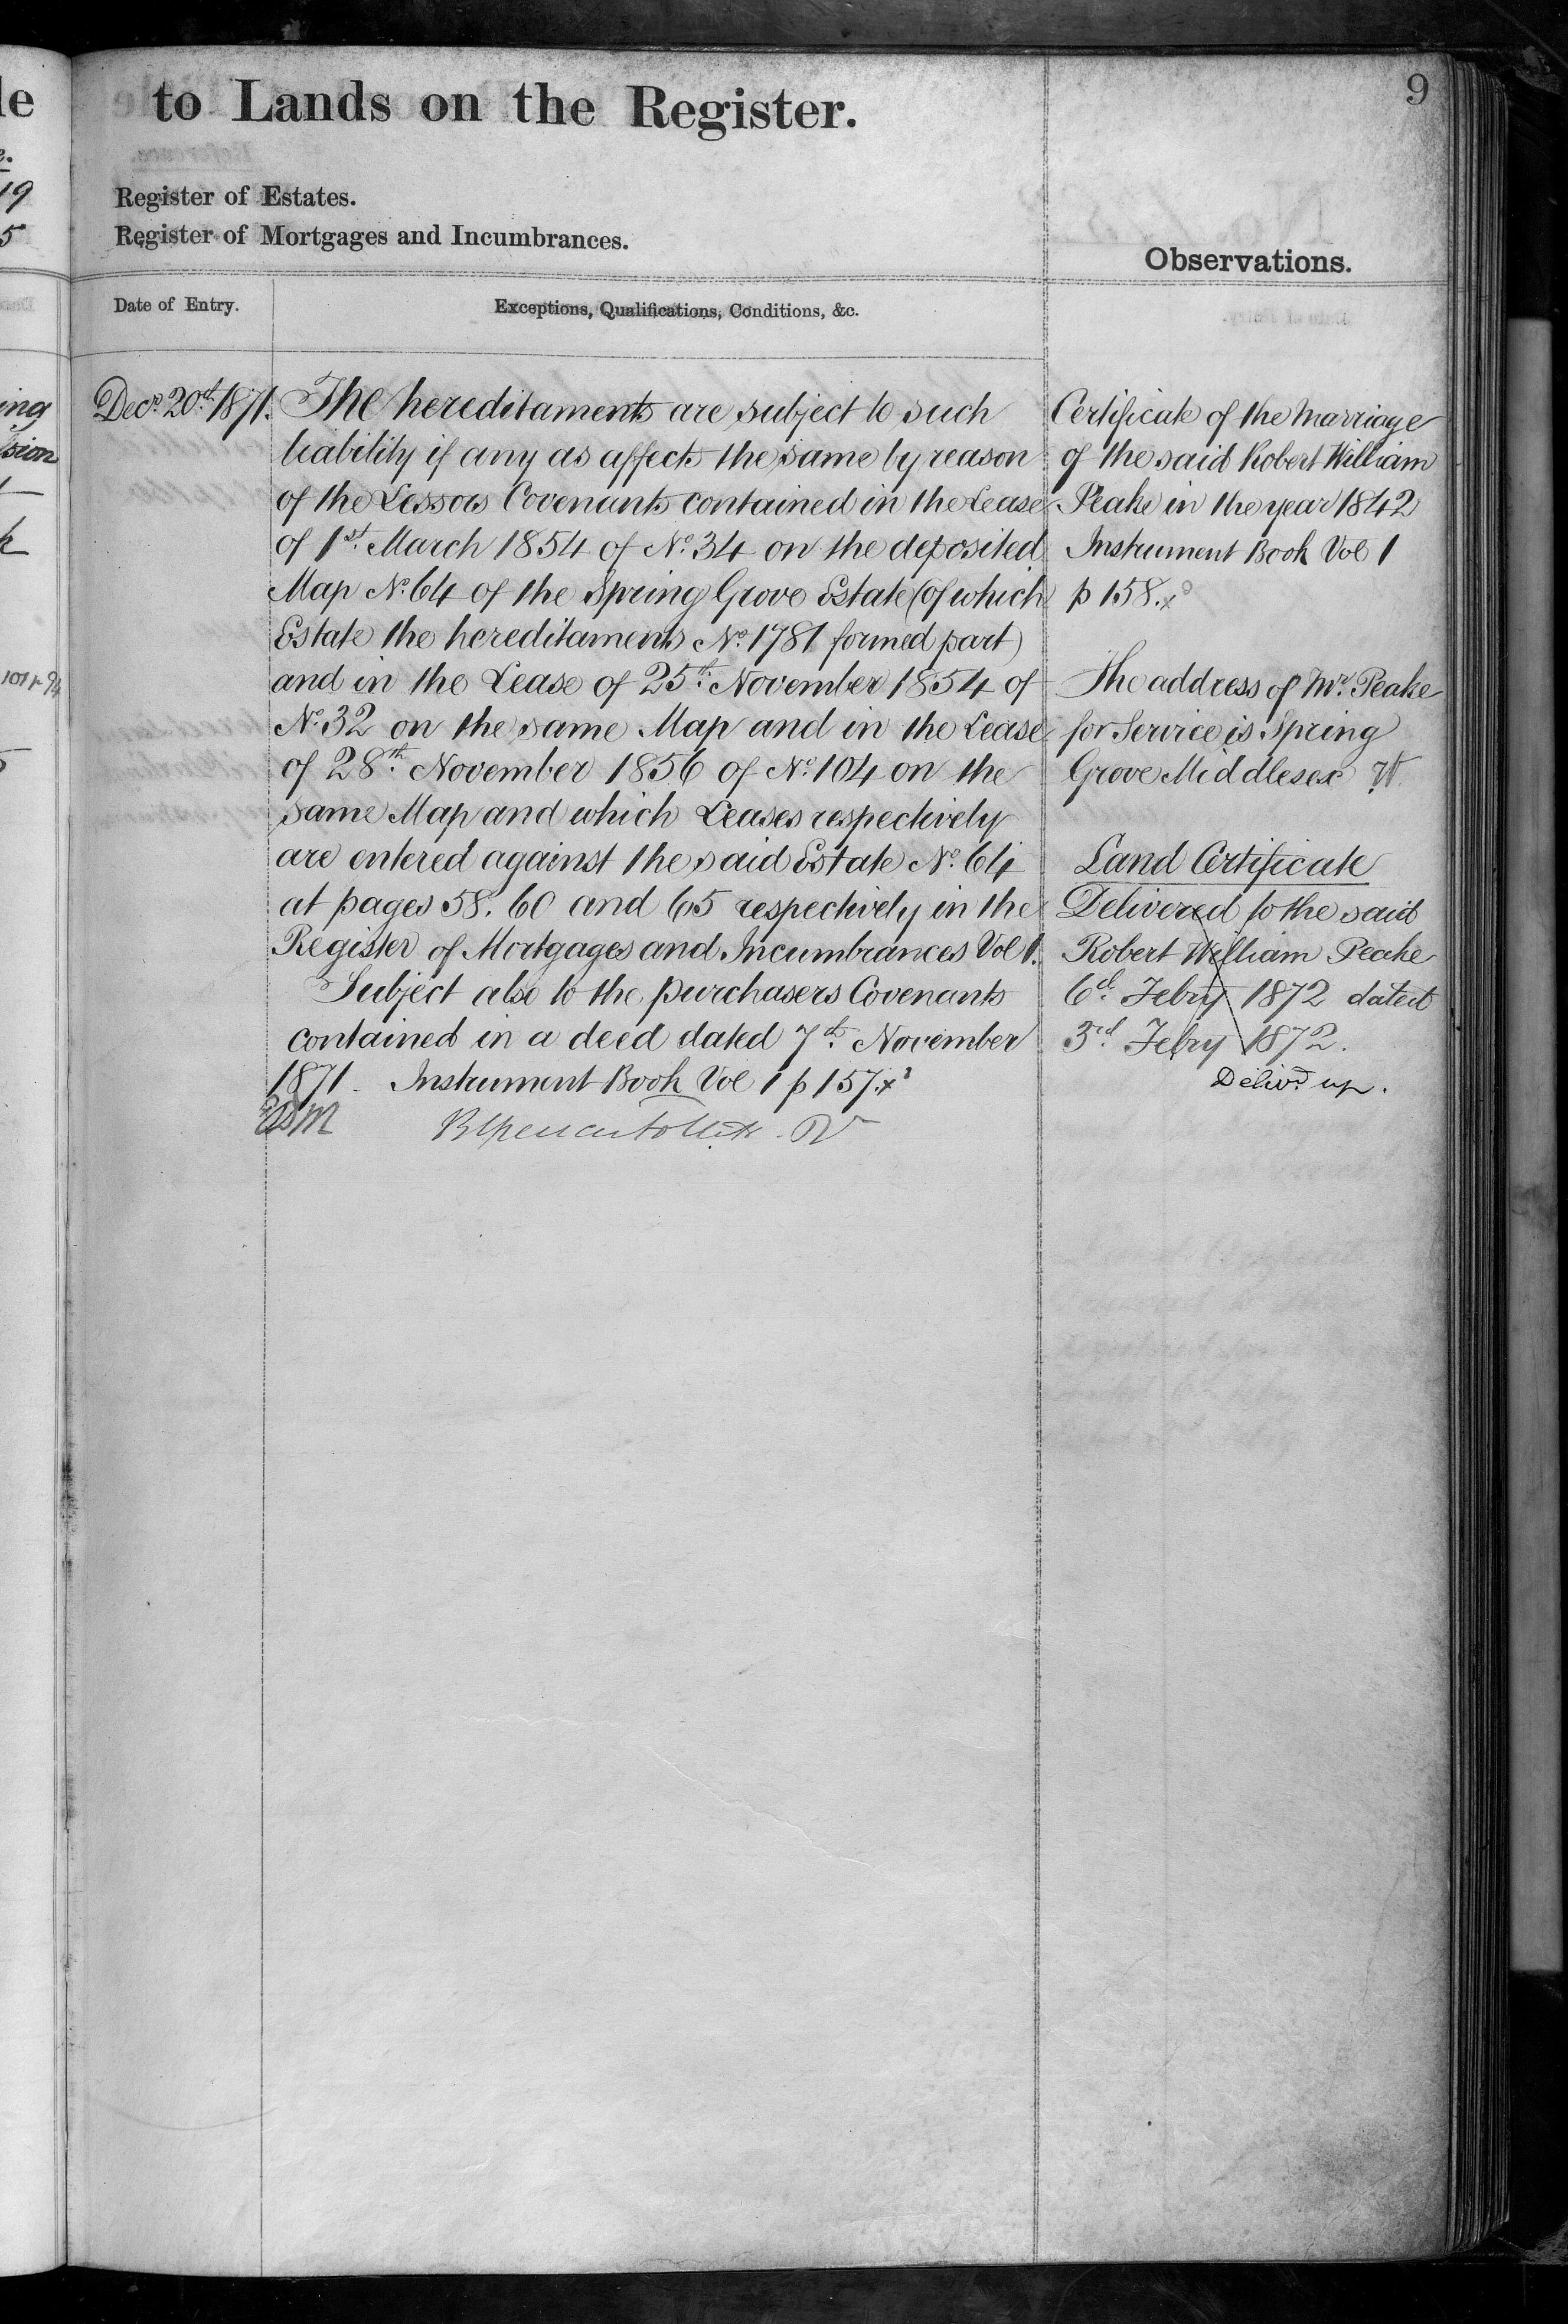 to Lands on the Register.
9
Register of Estates.
Register of Mortgages and Incumbrances.
Observations.
Date of Entry.
Exceptions, Qualifications, Conditions, &c.
Decr. 20th 1871.
The hereditaments are subject to such
liability if any as affects the same by reason
of the Lessors Covenants contained in the Lease
of 1st. March 1854 of No. 34 on the deposited
Map No. 64 of the Spring Grove Estate (of which
Estate the hereditaments No. 1781 formed part)
and in the Lease of 25th. November 1854 of
No. 32 on the same Map and in the Lease
of 28th. November 1856 of No. 104 on the
same Map and which Leases respectively
are entered against the said Estate No. 64
at pages 58. 60 and 65 respectively in the
Register of Mortgages and Incumbrances Vol 1.
Subject also to the purchasers Covenants
contained in a deed dated 7th. November
1871 - Instrument Book Vol 1 p 157.
Certificate of the Marriage
of the said Robert William
Peake in the year 1842
Instrument Book Vol 1
p 158.
The address of Mr. Peake
for Service is Spring
Grove Middlesex W.
Land Certificate
Delivered to the said
Robert William Peake
6th. Febry 1872 dated
3rd. Febry 1872.
Delivd. up.